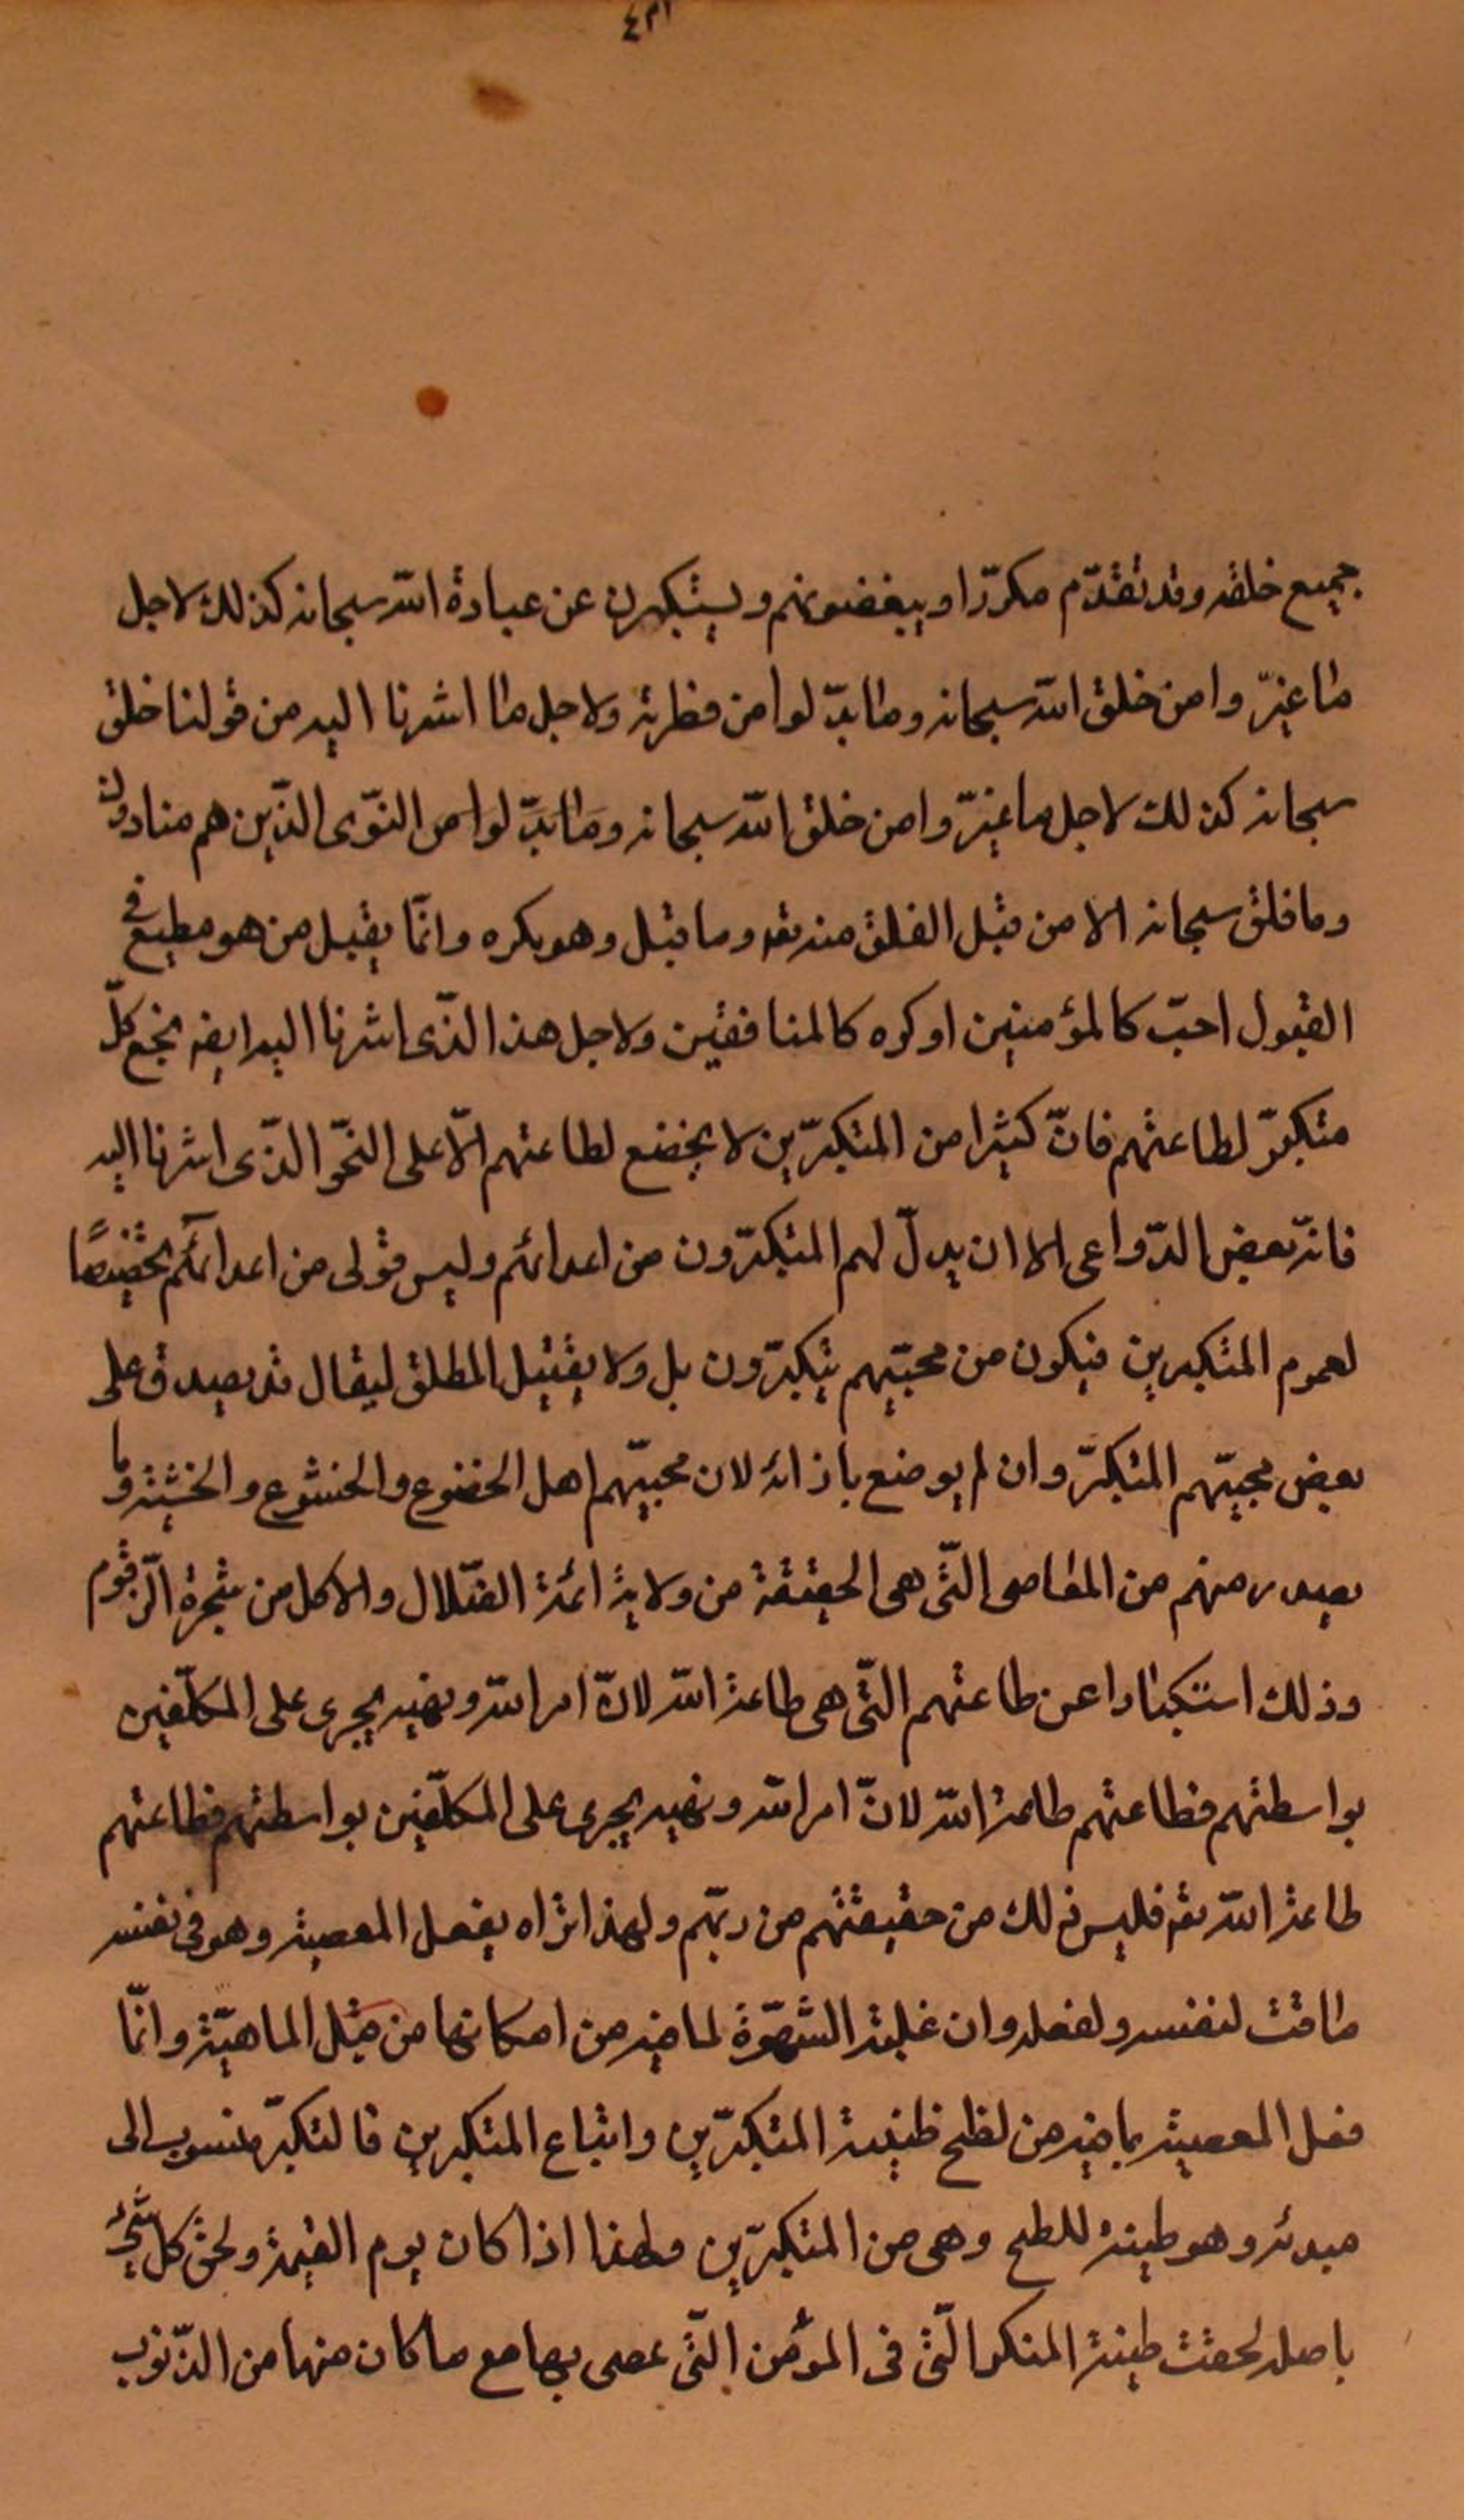 ٤٣١
جميع خلقه وقد تقدّم مكرّرا ويبغضونهم ويستكبرن عن عبادة الله سبحانه كذلك لاجل
ما غيّروا من خلق الله سبحانه وما بدّلوا من فطرته ولاجل ما اشرنا اليه من قولنا خلق
سبحانه كذلك لاجل ما غيّروا من خلق الله سبحانه وما بدّلوا من النّوى الذّين هم منادون
وما خلق سبحانه الا من قبل الخلق منه تعه وما قبل وهو يكره وانّما يقبل من هو مطيع في
القبول احبّ كالمؤمنين او كره كالمنافقين ولاجل هذا الذّى اشرنا اليه ايضه بخع كلّ
متكبّر لطاعتهم فانّ كثيرا من المتكبّرين لا يخضع لطاعتهم الّا على النّحو الذّى اشرنا اليه
فانّه بعض الدّواعى الا ان يدلّ لهم المتكبّرون من اعدائهم وليس قولى من اعدائهم تخصيصًا
لعموم المتكبرين فيكون من محبّيهم يتكبّرون بل ولا يقتيل المطلق ليقال قد يصدق على
بعض محبيّهم المتكبّر وان لم يوضع بازائه لان محبيّهم اهل الخضوع والخشوع والخشية وما
يصدر منهم من المعاصى التّى هى الحقيقة من ولاية ائمة الضّلال والاكل من شجرة الزّقوم
وذلك استكبارا عن طاعتهم التّى هى طاعة الله لانّ امر الله ونهيه يجرى على المكلّفين
بواسطتهم فطاعتهم طاعة الله لانّ امر الله ونهيه يجرى على المكلّفين بواسطتهم فطاعتهم
طاعة الله تعه فليس ذلك من حقيقتهم من ربّهم ولهذا تراه يفعل المعصية وهو فى نفسه
ماقت لنفسه ولفعله وان غلبته الشّهوة لما فيه من امكانها من قبل الماهيّة وانّما
فعل المعصية بما فيه من لطخ طينة المتكبّرين واتباع المتكبرين فالتكبّر منسوب الى
مبدئه وهو طينة للطخ وهى من المتكبّرين ولهذا اذا كان يوم القيمة ولحق كل شئ
باصله لحقت طينة المنكر التّى فى المؤمن التّى عصى بها مع ما كان منها من الذّنوب